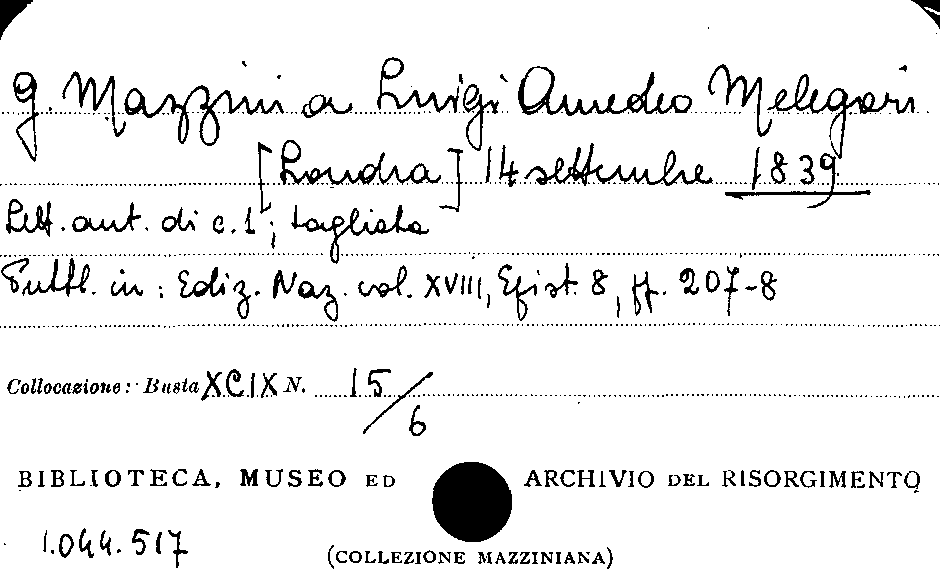 G. Mazzini a Luigi Amedeo Melegari
[Londra] 14 settembre 1839
Lett. aut. di c. 1; tagliata
Pubbl. in: Ediz. Naz. vol. XVIII, Epist. 8, pp. 207-8
Collocazione: Busta XCIX N. 15/6
BIBLIOTECA, MUSEO ED ARCHIVIO DEL RISORGIMENTO
1.044.517
(COLLEZIONE MAZZINIANA)